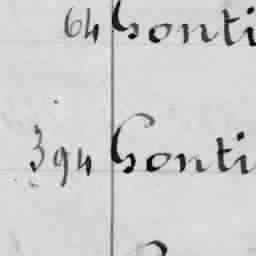 64 Conti
394 Conti